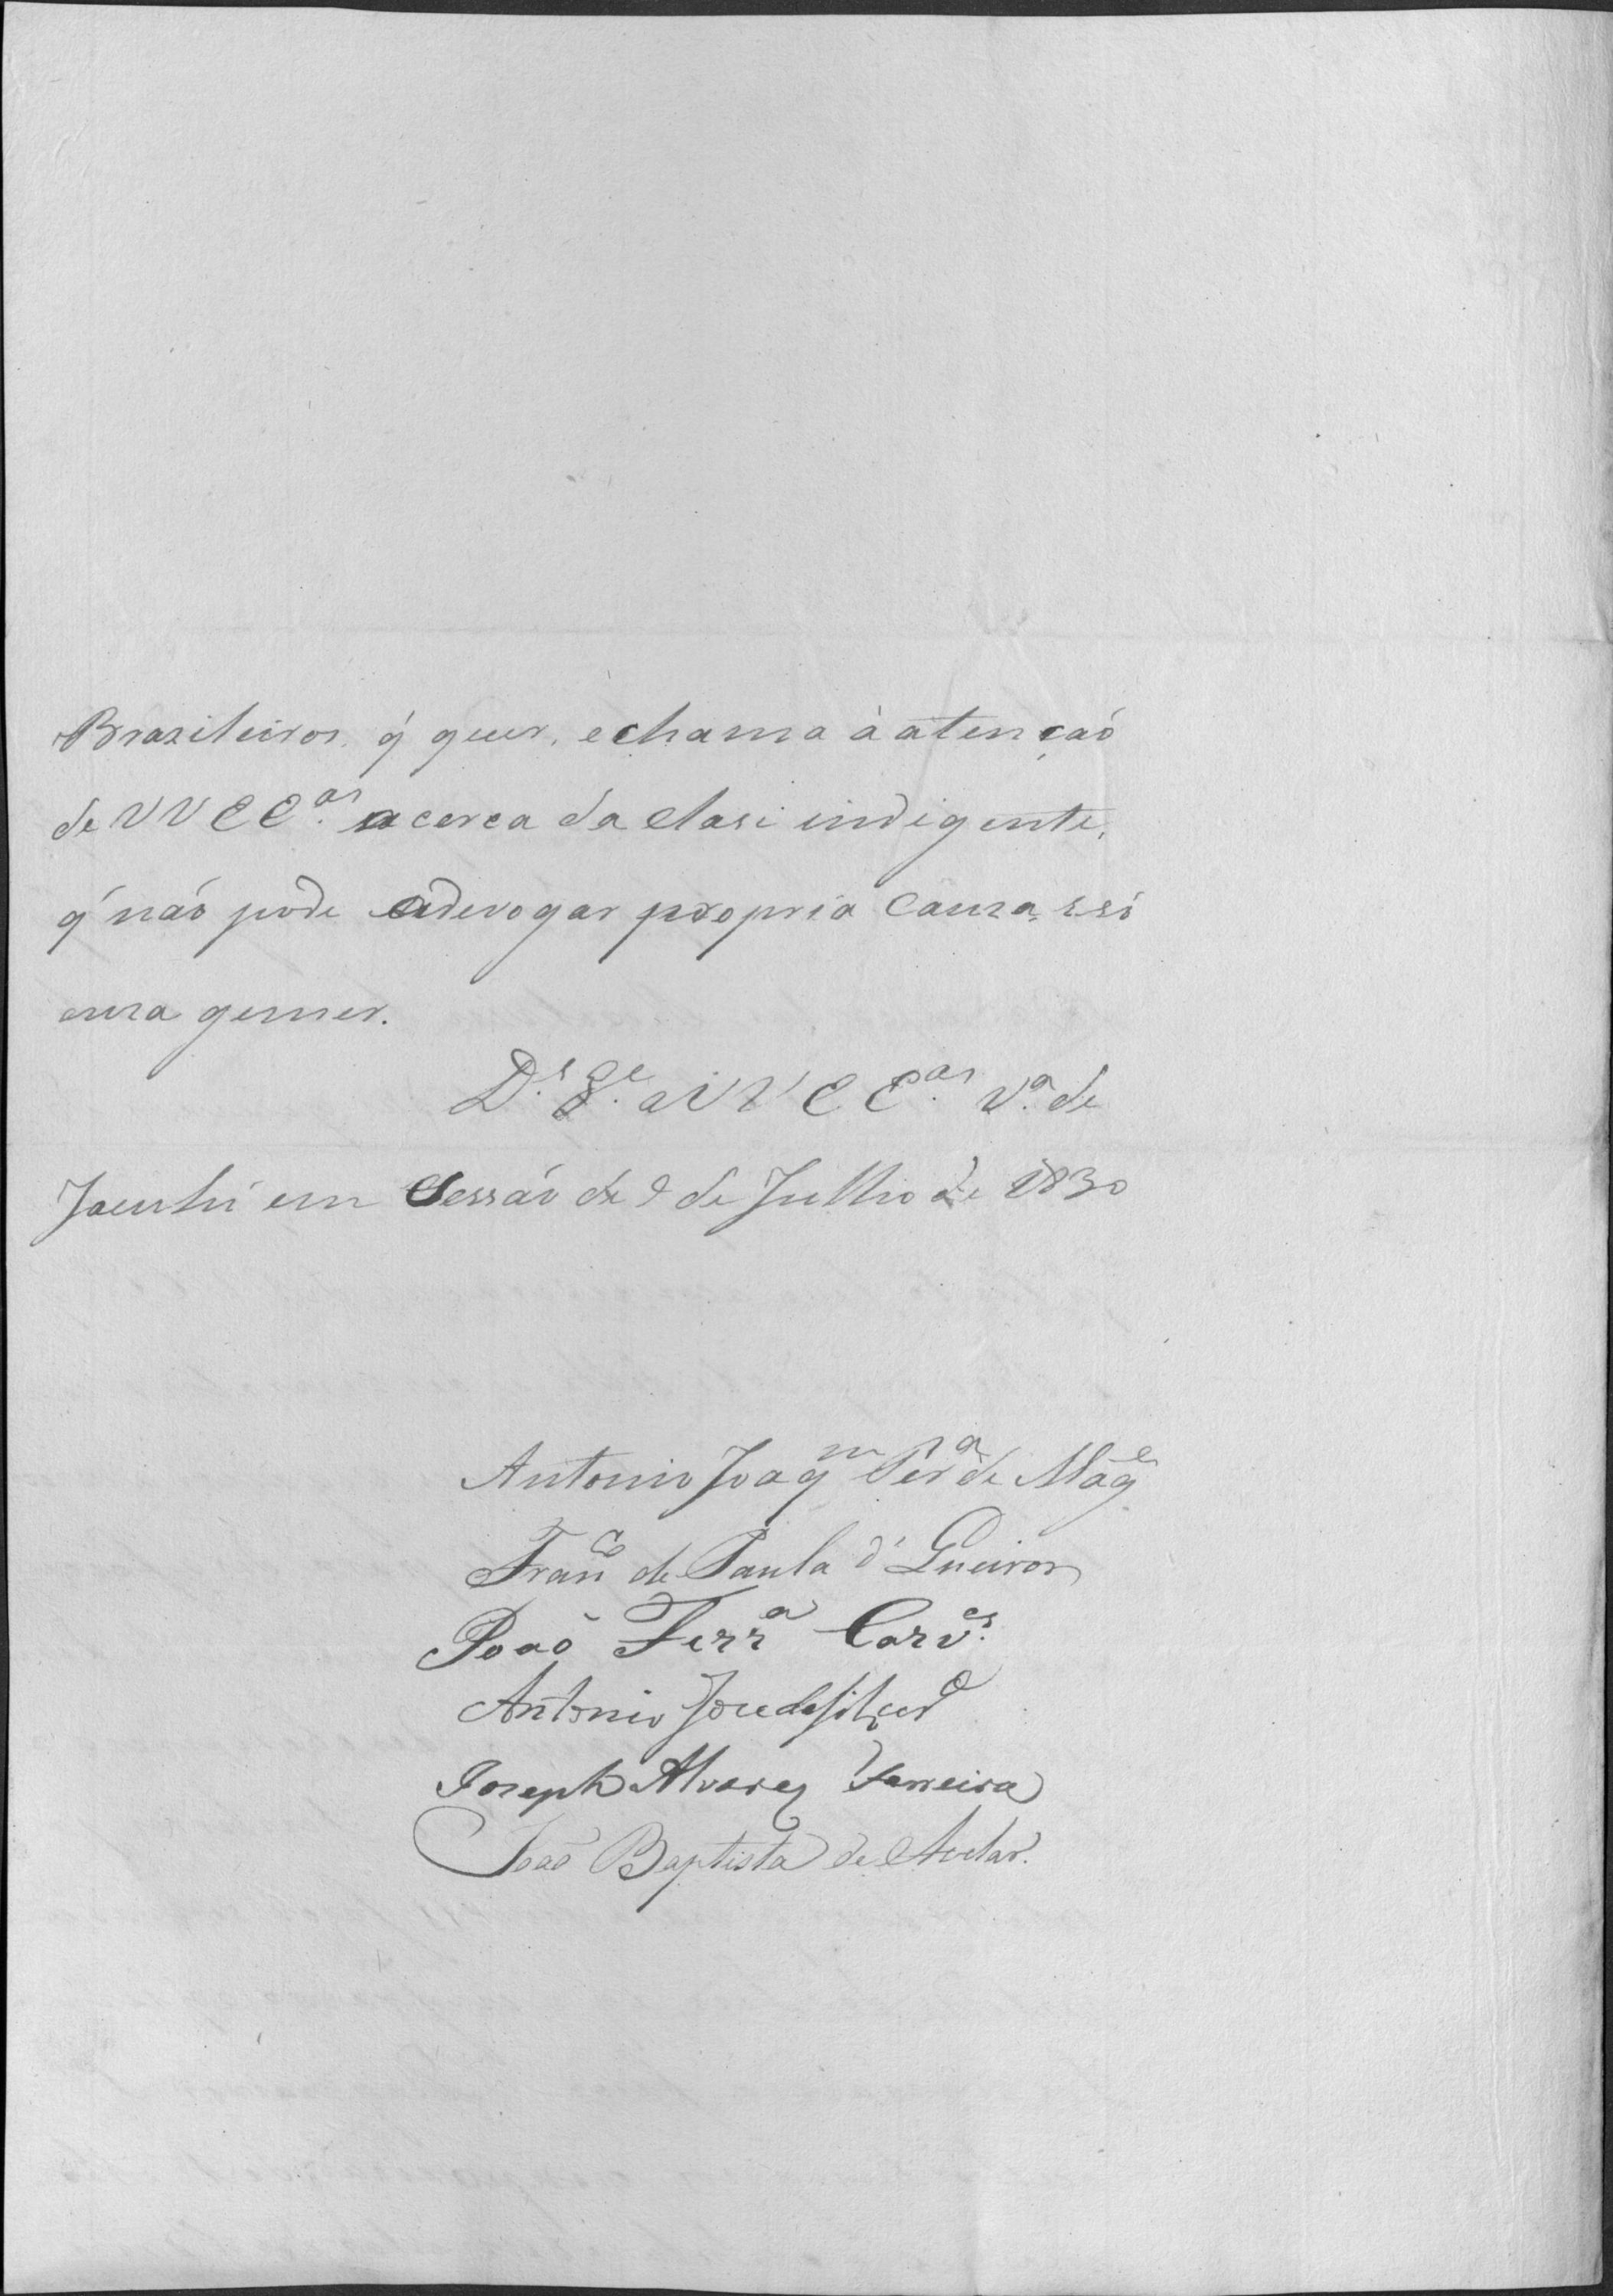 Brazileiros, q' quer, e chama à atençaõ
de VV EE.as acerca da clase indigente,
q' naõ pode adevogar propria cauza, e só
uza gemer.
D.s G.e a VV EE.as V.a de
Jacuhi em Sessaõ de 9 de Julho de 1830
Antonio Joaq.m Per.a de Mag.e
Fran.co de Paula d'
Joaõ Ferr.a Carv.
Antonio Joze de
Joseph Alvarez Ferreira
Joaõ Baptista de Avelar.